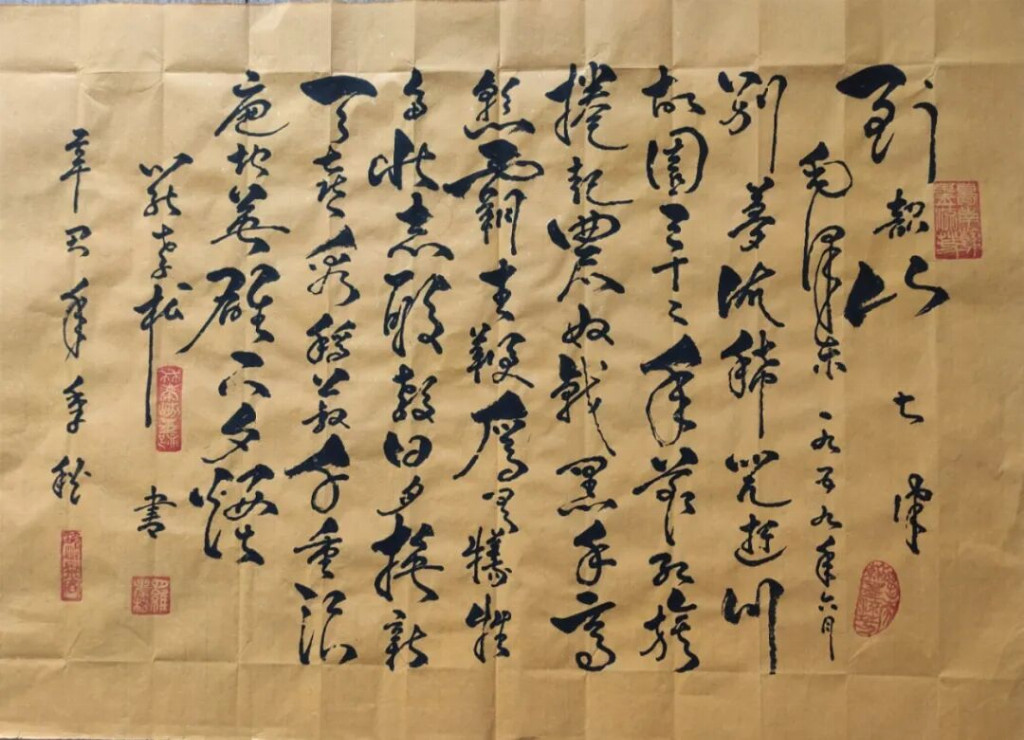 到韶山 七律
毛澤东 一九五九年六月
别夢依稀咒逝川
故園三十二年前红旗
捲起農奴戟黑手高
懸霸主鞭為有犧牲
多壮志敢教日月换新
天喜看稻菽千重浪
遍地英雄下夕煙
松 書
辛巳年季秋